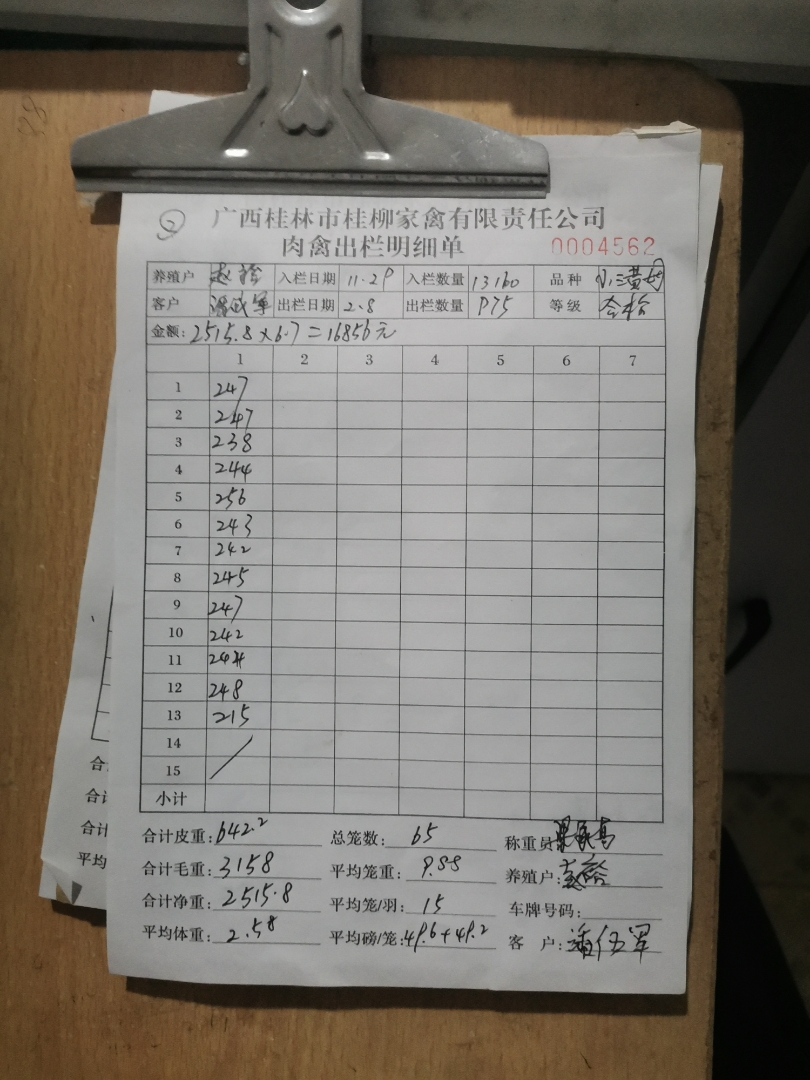 ② 广西桂林市桂柳家禽有限责任公司
肉禽出栏明细单 0004562
养殖户 赵 入栏日期 11.29 入栏数量 13160 品种
客户 出栏日期 2.8 出栏数量 975 等级 合格
金额: 2515.8×6.7=16856元
1 2 3 4 5 6 7
1 247
2 247
3 238
4 244
5 256
6 243
7 242
8 245
9 247
10 242
11 244
12 248
13 215
14
15
小计
合计皮重: 642.2 总笼数: 65 称重员:
合计毛重: 3158 平均笼重: 9.88 养殖户:
合计净重: 2515.8 平均笼/羽: 15 车牌号码:
平均体重: 2.58 平均磅/笼: 49.6+49.2 客 户: 潘伍军
合
合计
合计
平均